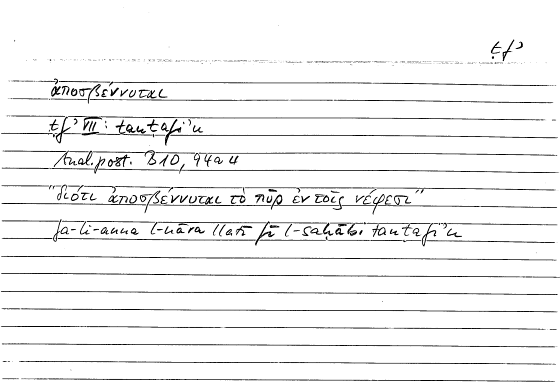 ṭfʾ
ἀποσβέννυται
ṭfʾ VII: tanṭafiʾu
Anal. post. B 10, 94a4
"διότι ἀποσβέννυται τὸ πῦρ ἐν τοῖς νέφεσι"
fa-li-anna l-nāra llatī fī l-saḥābi tanṭafiʾu